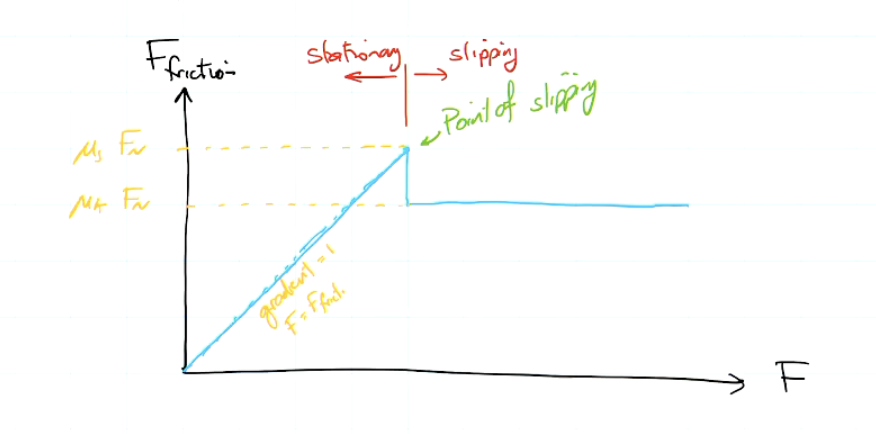 F friction
stationary
slipping
Point of slipping
μs FN
μk FN
gradient = 1
F = Ffrict.
F